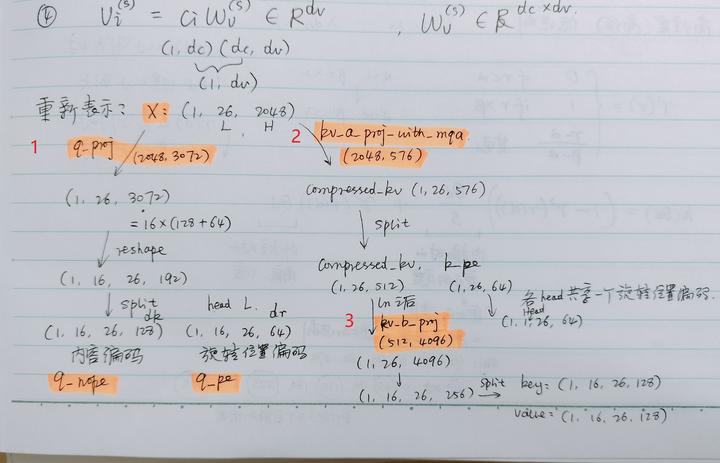 ④ Vᵢ⁽ˢ⁾ = Cᵢ Wᵥ⁽ˢ⁾ ∈ R^dv , Wᵥ⁽ˢ⁾ ∈ R^dc×dv.
(1, dc) (dc, dv)
(1, dv)
重新表示: X: (1, 26, 2048)
L, H
1
q_proj
(2048, 3072)
(1, 26, 3072)
= 16×(128+64)
reshape
(1, 16, 26, 192)
split
dk
(1, 16, 26, 128)
内容编码
q_nope
head L. dr
(1, 16, 26, 64)
旋转位置编码
q_pe
2
kv_a_proj_with_mqa
(2048, 576)
compressed_kv (1, 26, 576)
split
compressed_kv, k_pe
(1, 26, 512) (1, 26, 64)
各head共享一个旋转位置编码.
Head
(1, 1, 26, 64)
ln之后
3
kv_b_proj
(512, 4096)
(1, 26, 4096)
(1, 16, 26, 256)
split
key: (1, 16, 26, 128)
value: (1, 16, 26, 128)